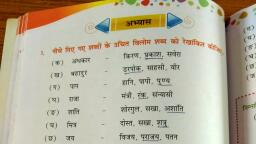 अभ्यास
1. नीचे दिए गए शब्दों के उचित विलोम शब्द को रेखांकित
(क) अंधकार - किरण, प्रकाश, सवेरा
(ख) बहादुर - डरपोक, साहसी, वीर
(ग) पाप - हानि, पापी, पुण्य
(घ) राजा - मंत्री, रंक, संन्यासी
(ङ) शांति - शोरगुल, सखा, अशांति
(च) मित्र - दोस्त, सखा, शत्रु
(छ) जय - विजय, पराजय, पतन